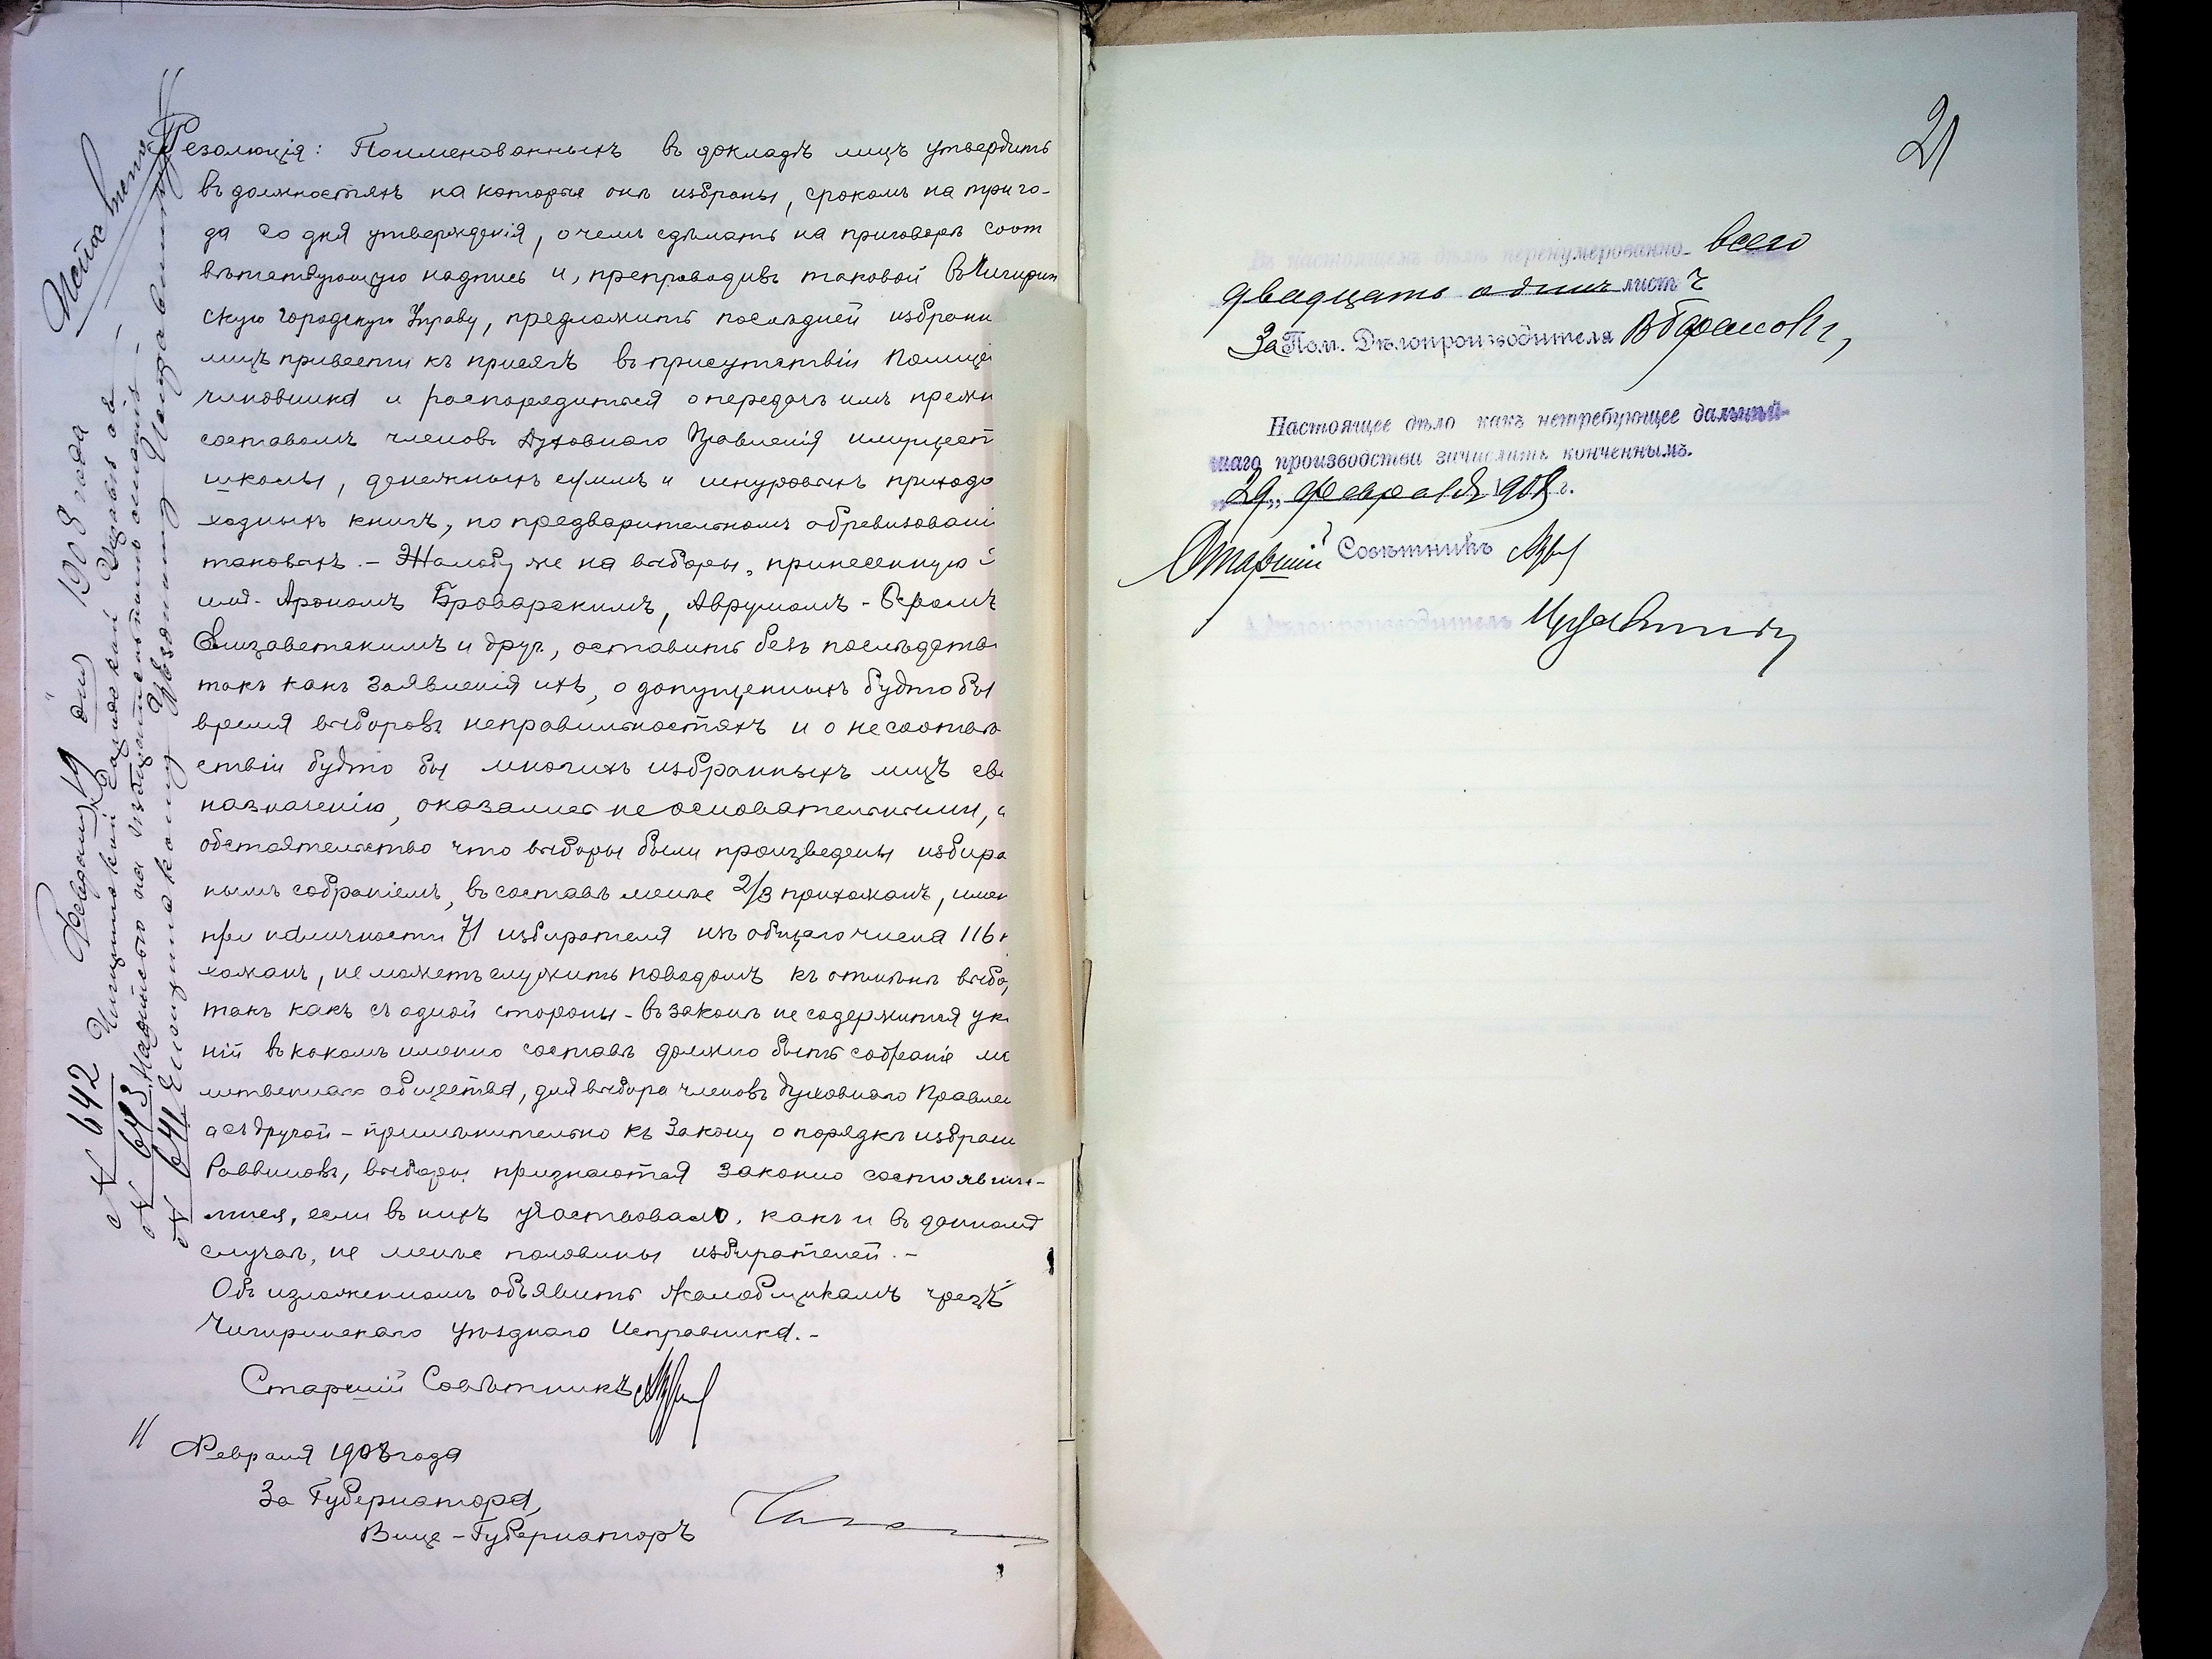 Резолюція: Поименованныхъ въ докладѣ лицъ утвердить
въ должностяхъ на которые они избраны, срокомъ на три го-
да со дня утвержденія, о чемъ сдѣлать на приговорѣ соот
вѣтствующую надпись и, препроводивъ таковой въ Чигирин
скую Городскую Управу, предложить послѣдней избранн
лицъ привести къ присягѣ въ присутствіи Полицей
чиновника и распорядиться о передачѣ имъ прежн
составомъ членовъ Духовнаго Правленія имущест
школы, денежныхъ суммъ и шнуровыхъ приходо
ходныхъ книгъ, по предварительномъ обревизовані
таковыхъ. - Жалобу же на выборы, принесенную
Арономъ Броварскимъ, Аврумомъ-
Елизаветскимъ и друг., оставить безъ послѣдств
такъ какъ заявленія ихъ, о допущенныхъ будто бы
время выборовъ неправильностяхъ и о несоотв
ствіи будто бы многихъ избранныхъ лицъ сво
назначенію, оказались неосновательными, а
обстоятельство что выборы были произведены избира
нымъ собраніемъ, въ составѣ менѣе 2/3 прихожанъ, имен
при наличности 71 избирателя изъ общаго числа 116
хожанъ, не можетъ служить поводомъ къ отмѣнѣ выбо
такъ какъ съ одной стороны - въ законѣ не содержится ука
ній въ какомъ именно составѣ должно быть собраніе мо
литвеннаго общества, для выбора членовъ Духовнаго Правлен
а съ другой - примѣнительно къ Закону о порядкѣ избрані
Раввиновъ, выборы признаются законно состоявши-
мися, если въ нихъ участвовало, какъ и въ данномъ
случаѣ, не менѣе половины избирателей. -
Объ изложенномъ объявить жалобщикамъ чрезъ
Чигиринскаго Уѣзднаго Исправника. -
Старшій Совѣтникъ
11 Февраля 1908 года
За Губернатора,
Вице-Губернаторъ
Февраля 19 дня 1908 года
№ 642
№ 643
№ 641
21
Въ настоящемъ дѣлѣ перенумерованно всего
двадцать одинъ листъ
За Пом. Дѣлопроизводителя
Настоящее дѣло какъ нетребующее дальнѣй-
шаго производства зачислить конченнымъ.
"29" Февраля 1908 г.
Старшій Совѣтникъ
Дѣлопроизводитель